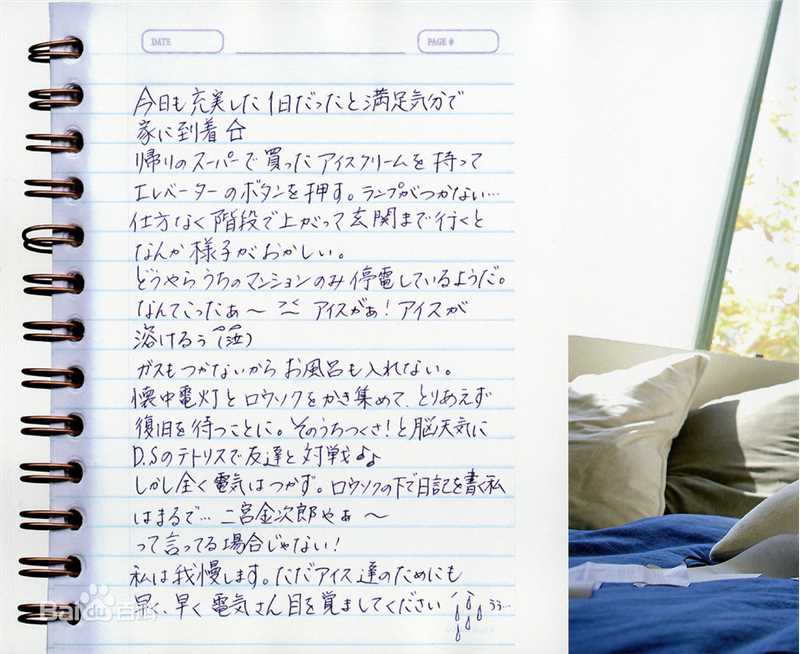 DATE
PAGE #
今日も充実した1日だったと満足気分で
家に到着
帰りのスーパーで買ったアイスクリームを持って
エレベーターのボタンを押す。ランプがつかない…
仕方なく階段で上がって玄関まで行くと
なんか様子がおかしい。
どうやらうちのマンションのみ停電しているようだ。
なんてこったぁ〜 アイスがぁ!アイスが
溶けるぅ(泣)
ガスもつかないからお風呂も入れない。
懐中電灯とロウソクをかき集めて、とりあえず
復旧を待つことに。そのうちつくさ!と脳天気に
D.Sのテトリスで友達と対戦♪♪
しかし全く電気はつかず。ロウソクの下で日記を書く私
はまるで…二宮金次郎やぁ〜
って言ってる場合じゃない!
私は我慢します。ただアイス達のためにも
早く、早く電気さん目を覚ましてください うう…
Bai百科